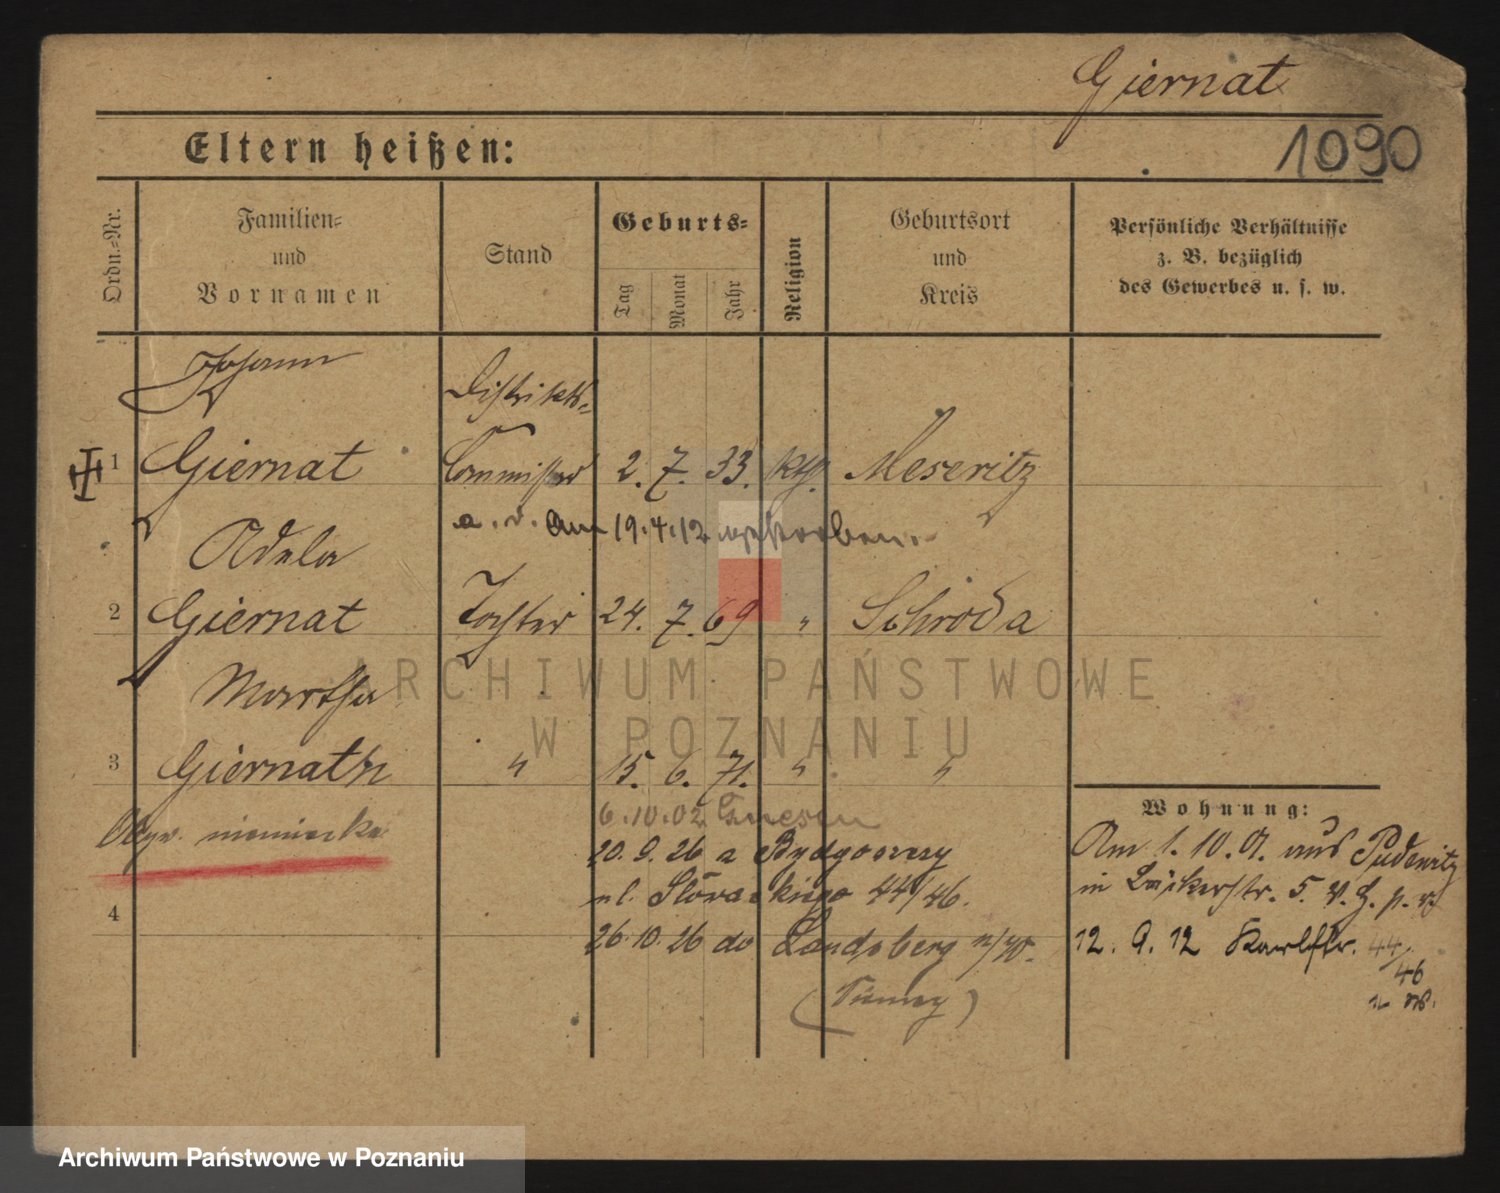 Giernat
1090
Eltern heißen:
Ordn.-Nr.
Familien-
und
Vornamen
Stand
Geburts-
Tag
Monat
Jahr
Religion
Geburtsort
und
Kreis
Persönliche Verhältnisse
z. B. bezüglich
des Gewerbes u. s. w.
Johann
Distrikts-
1 Giernat Commissar 2. 7. 33. kth. Meseritz
a. D. Am 19.4.12 verstorben.
Adela
2 Giernat Tochter 24. 7. 69 " Schroda
Martha
3 Giernath " 15. 6. 71. " "
ARCHIWUM PAŃSTWOWE
W POZNANIU
Obyw. niemiecka
6.10.02 Gnesen
20. 9. 26 a Bydgoszczy
ul. Słowackiego 44/46.
4
26. 10. 26 do Landsberg n/W.
(Niemcy)
Wohnung:
Am 1. 10. 01. aus Pudewitz
in Bäckerstr. 5. v. H. p. r.
12. 9. 12 Karlstr. 44/
46
Archiwum Państwowe w Poznaniu